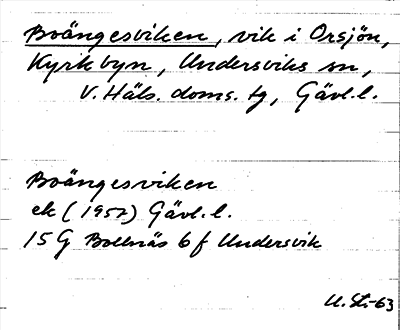 Boängesviken, vik i Orsjön,
Kyrkbyn, Undersviks sn,
V. Häls. doms. tg, Gävl.l.
Boängesviken
ek (1957) Gävl.l.
15 G Bollnäs 6 f Undersvik
U. St.-63